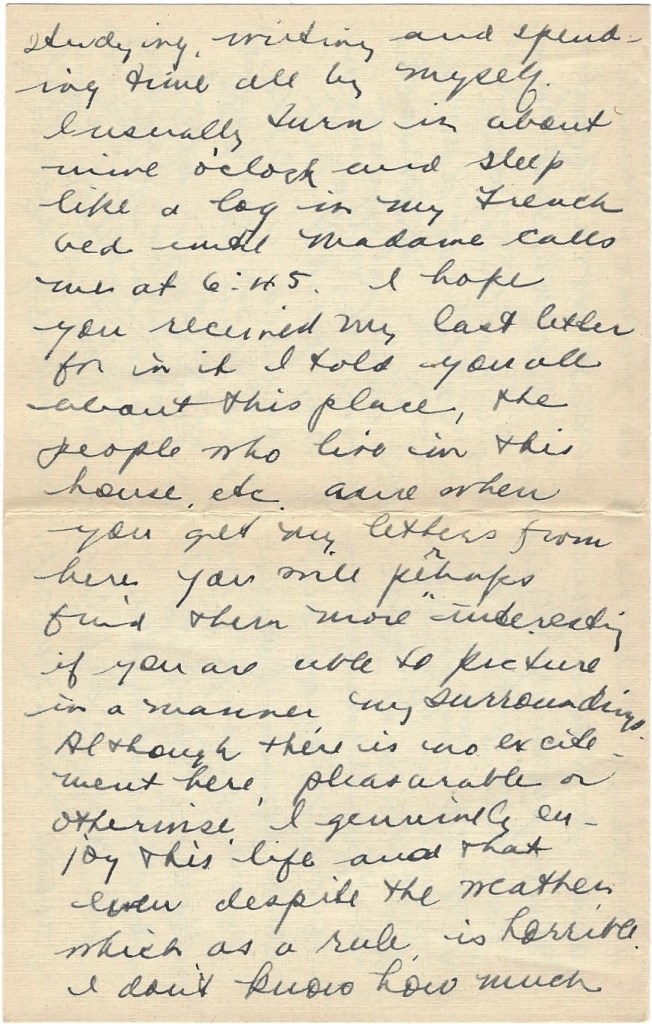 studying, writing and spend-
ing time all by myself.
I usually turn in about
nine o'clock and sleep
like a log in my French
bed until Madame calls
me at 6:45. I hope
you received my last letter
for in it I told you all
about this place, the
people who live in this
house, etc. and when
you get my letters from
here you will perhaps
find them more interesting
if you are able to picture
in a manner my surroundings.
Although there is no excite-
ment here, pleasurable or
otherwise, I genuinely en-
joy this life and that
even despite the weather
which as a rule is horrible.
I don't know how much